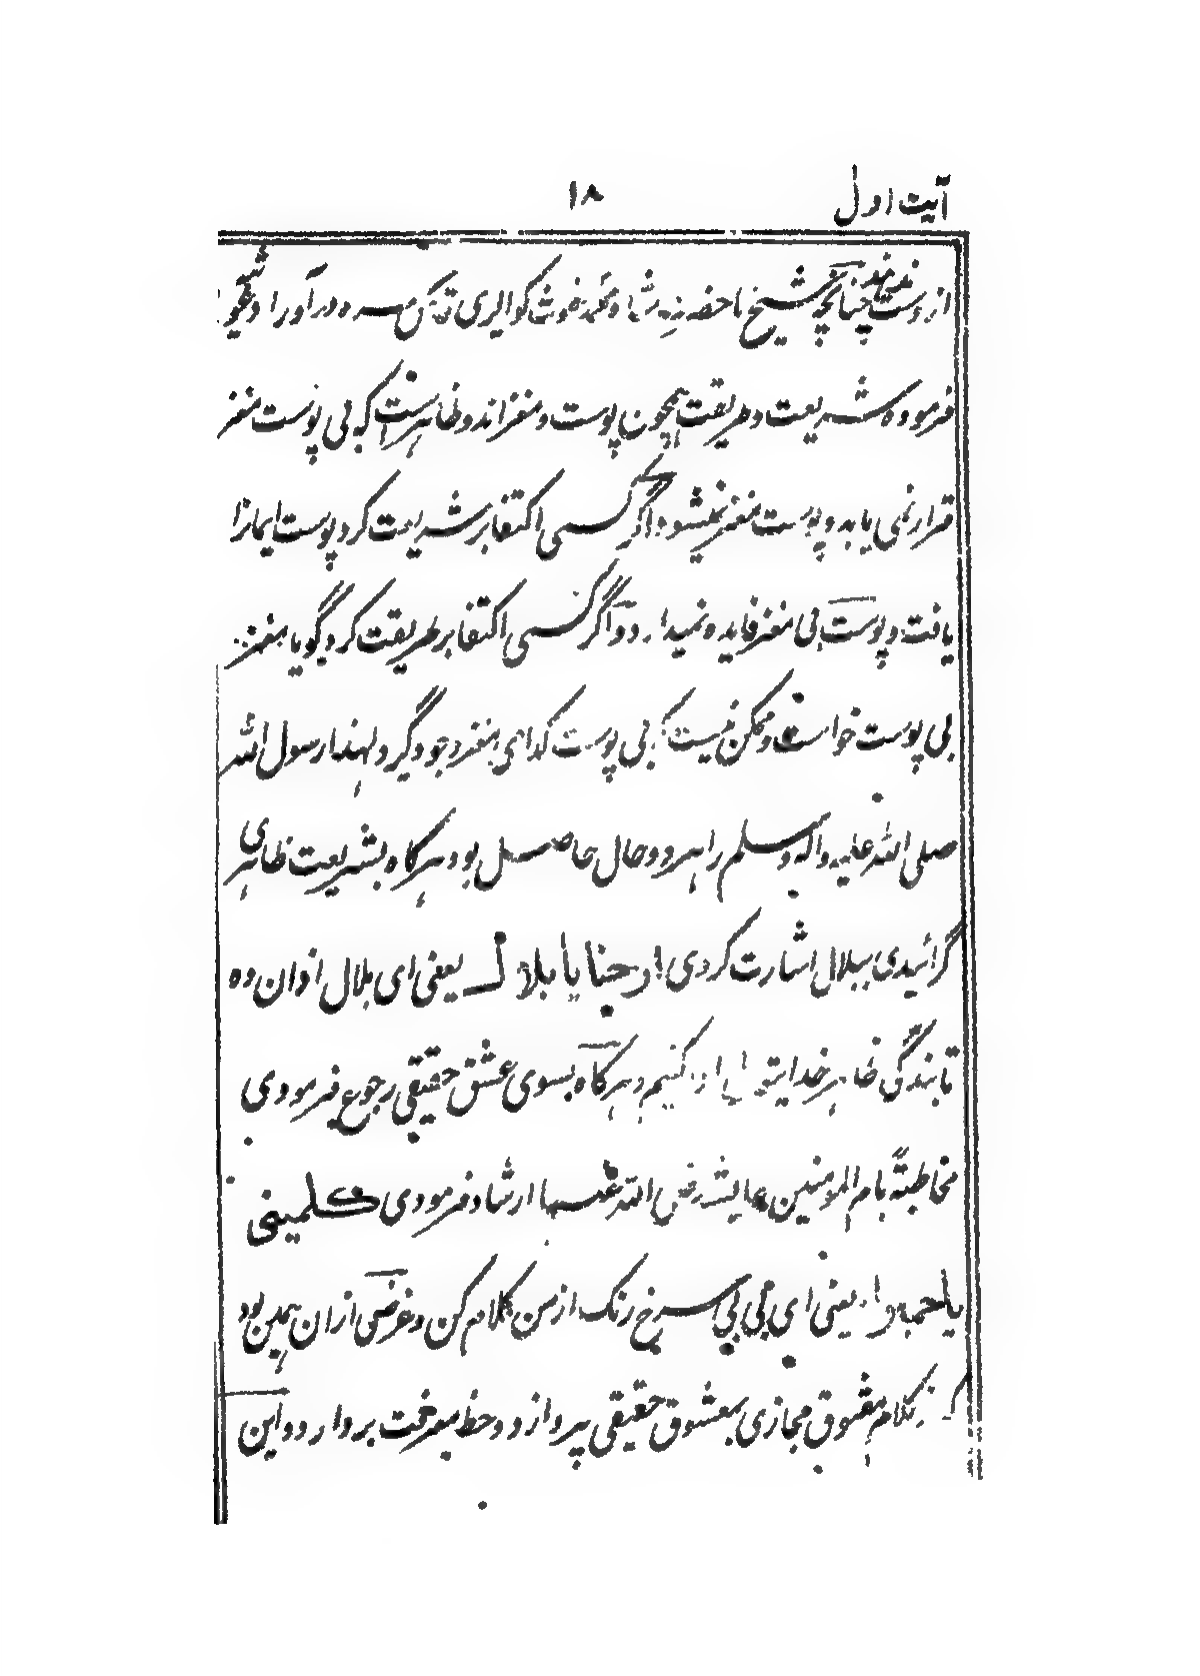 آیت اول
۱۸
از دست چنانچه شیخ محمد غوث گوالیری در اوراد غوثیه
فرموده شریعت و طریقت همچون پوست و مغز اند و ظاهرست که بی پوست مغز
قرار نمی یابد و پوست مغز نمیشود اگر کسی اکتفا بر شریعت کرد پوست ایمانرا
یافت و پوست بی مغز فایده نمیدارد و اگر کسی اکتفا بر طریقت کرد گویا مغز
بی پوست خواست و ممکن نیست که بی پوست کدامی مغز وجود گیرد لهذا رسول الله
صلی الله علیه واله وسلم را هر دو حال حاصل بود هرگاه بشریعت ظاهری
گرائیدی ببلال اشارت کردی ارحنا یا بلال یعنی ای بلال اذان ده
تا بندگی ظاهر خدایتعالی ادا کنیم و هرگاه بسوی عشق حقیقی رجوع فرمودی
مخاطبةً بام المومنین عایشه رضی الله عنها ارشاد فرمودی کلمینی
یا حمیرا یعنی ای بی بی سرخ رنگ از من کلام کن و غرض ازان همین بود
که بکلام معشوق مجازی بمعشوق حقیقی پردازد و حظ معرفت بردارد و این